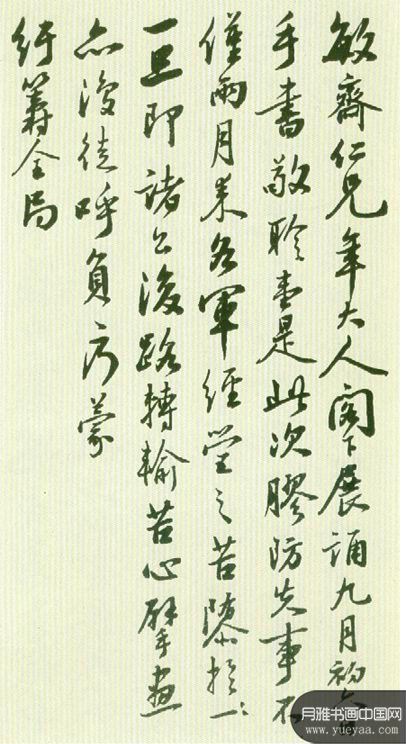 敏齋仁兄年大人閣下展誦九月初六日
手書敬聆壹是此次膠防失事不
僅兩月來各軍經營之苦隳於
一旦即諸公後路轉輸苦心擘畫
亦復徒呼負蒙
紆籌全局
月雅书画中国网
www.yueyaa.com